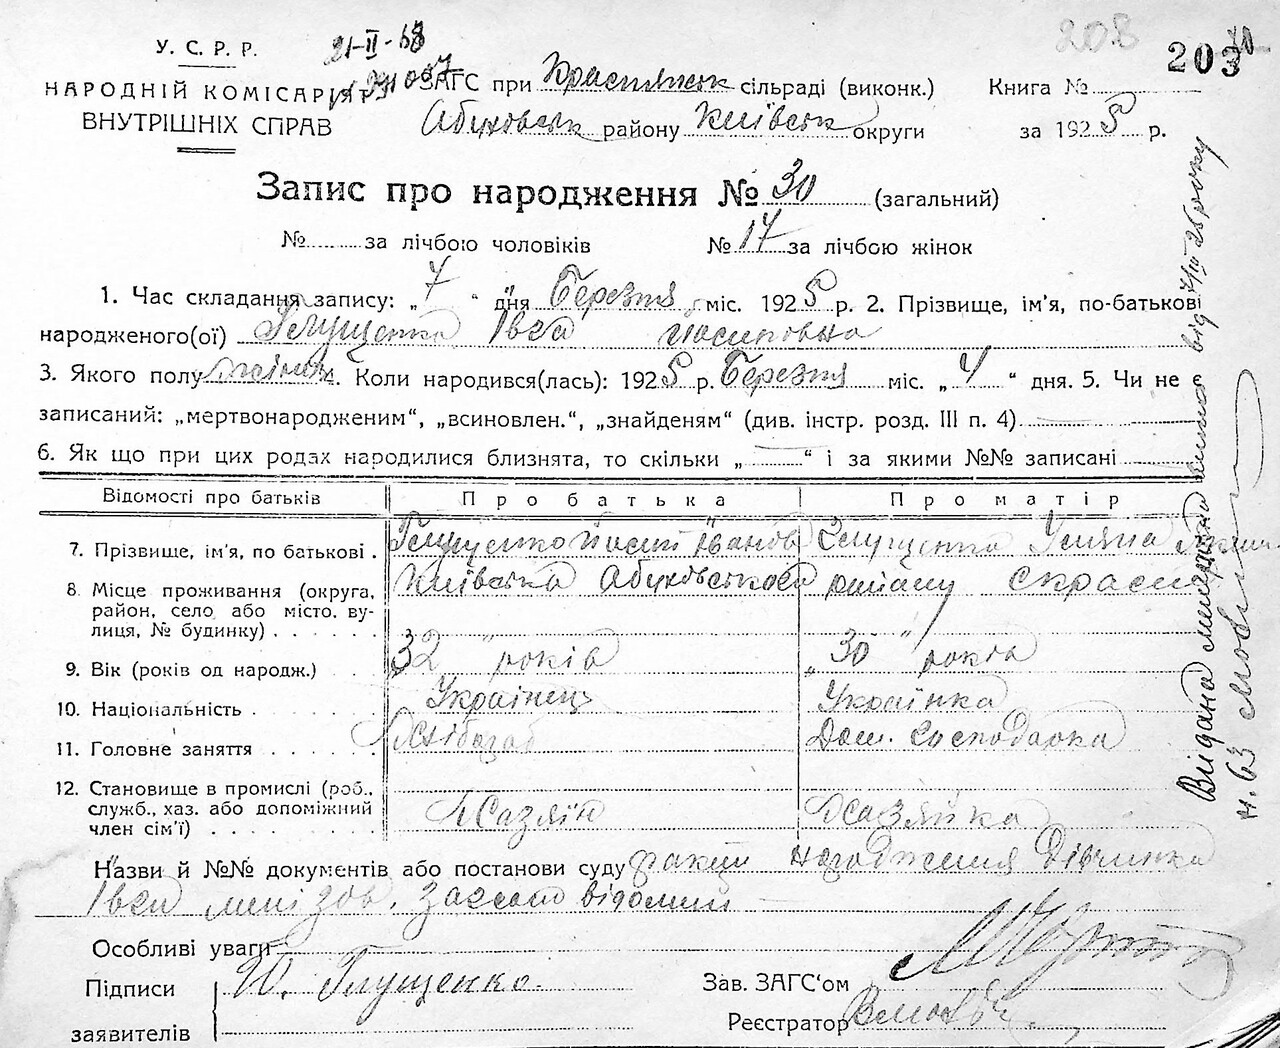 208
203
У. С. Р. Р.
21-II-68
НАРОДНІЙ КОМІСАРІЯТ
ВНУТРІШНІХ СПРАВ
ЗАГС при Краснянськ сільраді (виконк.) Книга №
Абуховськ району Київськ округи за 1925 р.
Запис про народження № 30 (загальний)
№ за лічбою чоловіків № 17 за лічбою жінок
1. Час складання запису: „ 7 “ дня Березня міс. 1925 р. 2. Прізвище, ім'я, по-батькові
народженого(ої) Глущенко Івга Йосиповна
3. Якого полу 4. Коли народився(лась): 1925 р. Березня міс. „ 4 “ дня. 5. Чи не є
записаний: „мертвонародженим“, „всиновлен.“, „знайденям“ (див. інстр. розд. III п. 4)
6. Як що при цих родах народилися близнята, то скільки „ “ і за якими №№ записані
Відомості про батьків Про батька Про матір
7. Прізвище, ім'я, по батькові . Глущенко Йосип Іванов Глущенко Уляна
8. Місце проживання (округа, район, село або місто, вулиця, № будинку) . . . . . . Київська Абуховського району
9. Вік (років од народж.) . . 32 років „ 30 “ років
10. Національність . . . . . . Українец Українка
11. Головне заняття . . . . . Хлібороб Дом. Господарка
12. Становище в промислі (роб., служб., хаз. або допоміжний член сім'ї) . . . . . . . Хазяїн Хазяйка
Назви й №№ документів або постанови суду факт народження дівчинки
Івги мені зав. Загсом відомий
Особливі уваги
Підписи Ю. Глущенко. Зав. ЗАГС'ом
заявителів Реєстратор
Видана від 7/III 25 року
н. 63